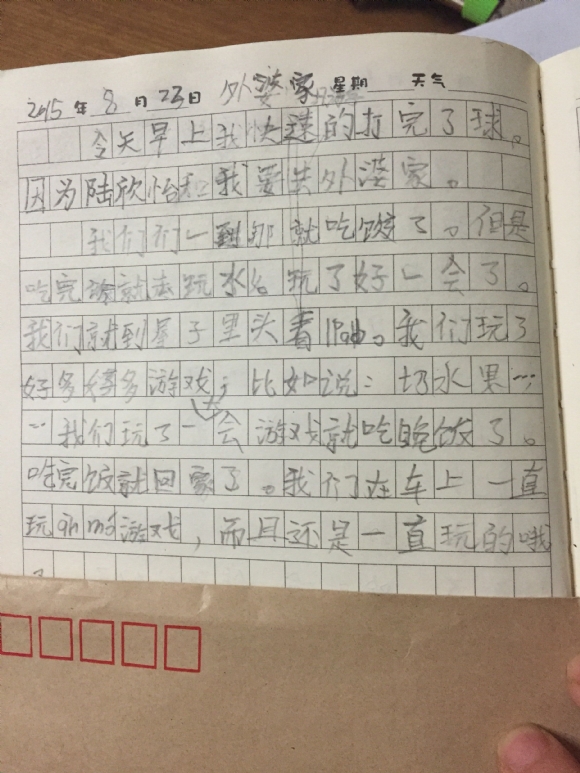 2015年8月23日 外婆家 星期 天气
今天早上我快速的打完了球。
因为陆欣怡和我要去外婆家。
我们们一到那就吃饭了。但是
吃完就去玩水。玩了好一会了。
我们就到屋子里头看iPad。我们玩了
好多好多游戏，比如说：切水果…
…我们玩了一会游戏就吃晚饭了。
吃完饭就回家了。我们在车上一直
玩游戏，而且还是一直玩的哦